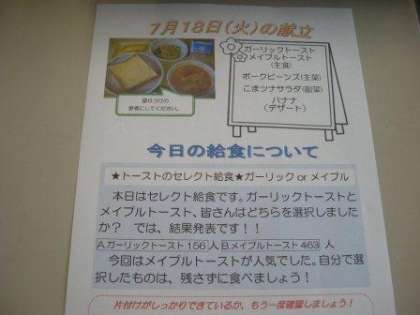 7月18日(火)の献立
ガーリックトースト
メイプルトースト
(主食)
ポークビーンズ(主菜)
ごまツナサラダ(副菜)
バナナ
(デザート)
盛りつけの
参考にしてください。
今日の給食について
★トーストのセレクト給食★ガーリック or メイプル
本日はセレクト給食です。ガーリックトーストと
メイプルトースト、皆さんはどちらを選択しました
か? では、結果発表です!!
A.ガーリックトースト 156人 B.メイプルトースト 463 人
今回はメイプルトーストが人気でした。自分で選
択したものは、残さずに食べましょう!
片付けがしっかりできているか、もう一度確認しましょう!